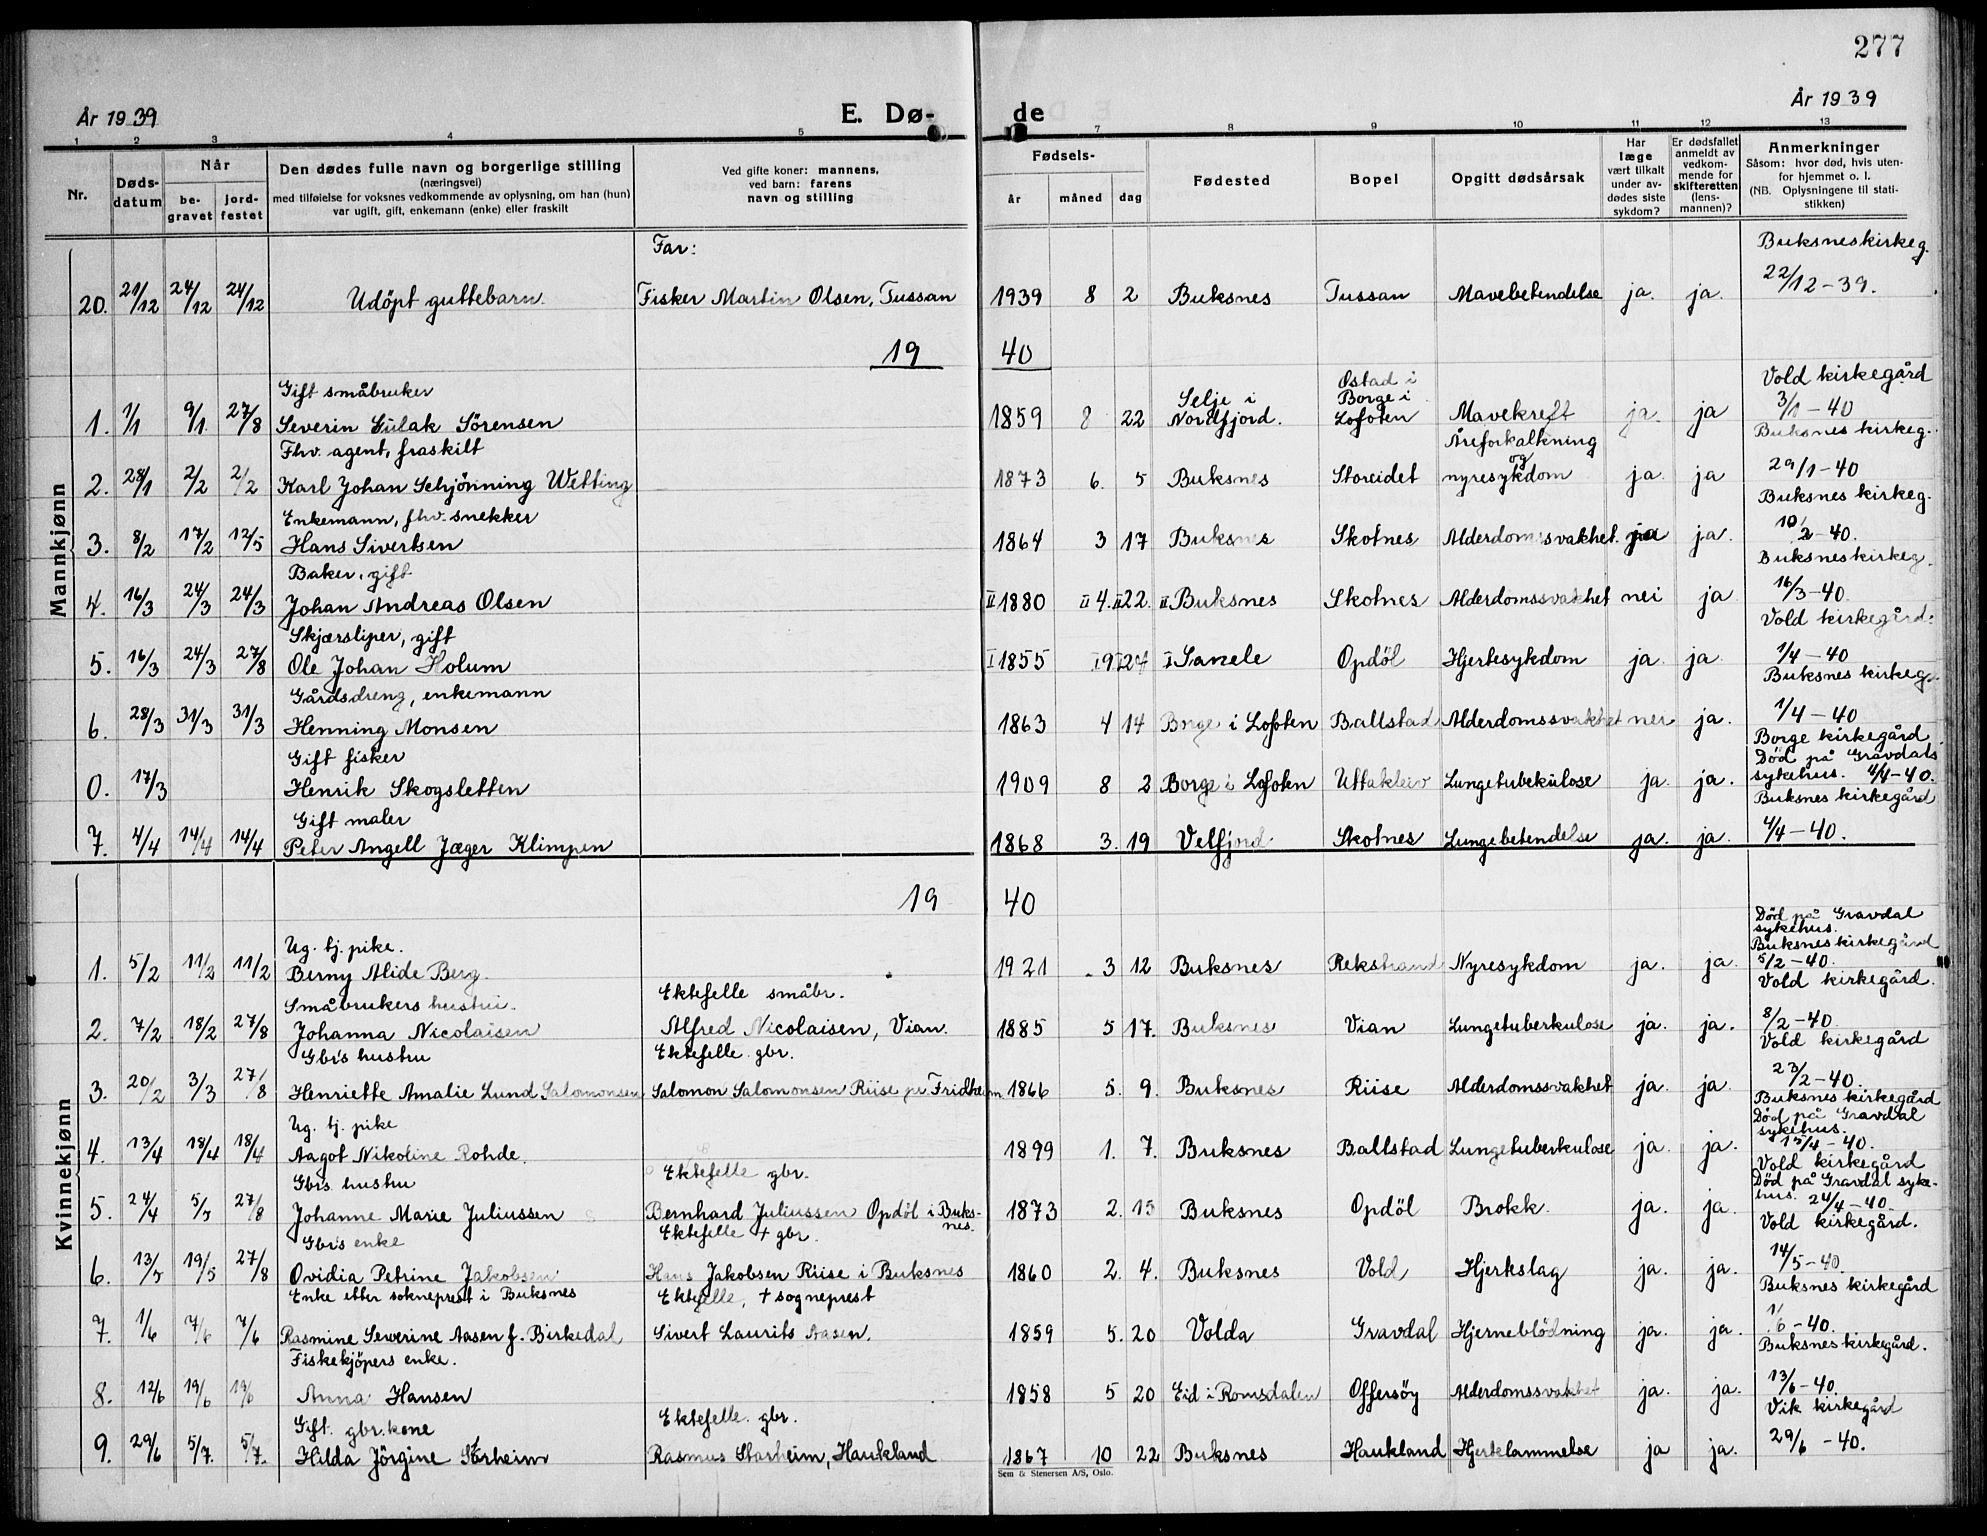 277
År 1939
E. Dø-
de
År 1939
1 2 3 4 5 7 8 9 10 11 12 13
Nr.
Døds-
datum
Når
be-
gravet
jord-
festet
Den dødes fulle navn og borgerlige stilling
(næringsvei)
med tilføielse for voksnes vedkommende av oplysning, om han (hun)
var ugift, gift, enkemann (enke) eller fraskilt
Ved gifte koner: mannens,
ved barn: farens
navn og stilling
Fødsels-
år måned dag
Fødested
Bopel
Opgitt dødsårsak
Har
læge
vært tilkalt
under av-
dødes siste
sykdom?
Er dødsfallet
anmeldt av
vedkom-
mende for
skifteretten
(lens-
mannen)?
Anmerkninger
Såsom: hvor død, hvis uten-
for hjemmet o. l.
(NB. Oplysningene til stati-
stikken)
Mannkjønn
Far: Buksneskirkeg.
20. 21/12 24/12 24/12 Udöpt guttebarn. Fisker Martin Olsen, Tussan 1939 8 2 Buksnes Tussan Mavebetendelse ja. ja. 22/12-39.
19 40
Gift småbruker Selje i Östad i Borge i Vold kirkegård
1. 1/1 9/1 27/8 Severin Gulak Sörensen 1859 8 22 Nordfjord. Lofoten Mavekreft ja. ja 3/1-40
Fhv. agent, fraskilt Åreforkalkning og Buksnes kirkeg.
2. 28/1 2/2 2/2 Karl Johan Schjönning Wetting 1873 6. 5 Buksnes Storeidet nyresykdom ja. ja 29/1-40
Enkemann, fhv. snekker Buksnes kirkeg.
3. 8/2 17/2 12/5 Hans Sivertsen 1864 3 17 Buksnes Skotnes Alderdomssvakhet. ja ja. 10/2-40.
Baker, gift Buksneskirkeg.
4. 16/3 24/3 24/3 Johan Andreas Olsen II 1880 II 4. II 22. II Buksnes Skotnes Alderdomssvakhet nei ja 16/3-40.
Skjærsliper, gift Vold kirkegård.
5. 16/3 24/3 27/8 Ole Johan Holum I 1855 I 9 I 24 I Sanele Opdöl Hjertesykdom ja. ja. 1/4-40
Gårdsdreng, enkemann Buksnes kirkeg.
6. 28/3 31/3 31/3 Henning Monsen 1863 4 14 Borge i Lofoten Ballstad Alderdomssvakhet nei ja. 1/4-40
Gift fisker Borge kirkegård
Död på Gravdals
0. 17/3 Henrik Skogsletten 1909 8 2 Borge i Lofoten Uttakleiv Lungetubekulose ja. ja. sykehus. 4/4-40.
Gift maler Buksnes kirkegård
7. 4/4 14/4 14/4 Peter Angell Jæger Klimpen 1868 3. 19 Velfjord Skotnes Lungebetendelse ja. ja. 4/4-40.
Kvinnekjønn
19 40
Död på Gravdal
sykehus.
Ug. tj. pike. Buksneskirkegård
1. 5/2 11/2 11/2 Berny Alide Berg. 1921 3 12 Buksnes Rekstrand Nyresykdom ja. ja. 5/2-40.
Småbrukers hustru. Ektefelle småbr. Vold kirkegård.
2. 7/2 18/2 27/8 Johanna Nicolaisen Alfred Nicolaisen, Vian. 1885 5 17. Buksnes Vian Lungetuberkulose ja. ja. 8/2-40.
Gbr's hustru Ektefelle. gbr. Vold kirkegård
3. 20/2 3/3 27/8 Henriette Amalie Lund Salomonsen Salomon Salomonsen Riise pr Fridheim. 1866 5. 9. Buksnes Riise Alderdomssvakhet ja. ja. 23/2-40.
Buksnes kirkegård
Ug. tj. pike Död på Gravdal sykehus.
4. 13/4 18/4 18/4 Aagot Nikoline Rohde. 1899 1. 7. Buksnes Ballstad Lungetuberkulose ja. ja. 13/4-40.
Gbrs. hustru Ektefelle gbr. Vold kirkegård
Död på Gravdal syke-
5. 24/4 5/5 27/8 Johanne Marie Juliussen Bernhard Juliussen Opdöl i Buks-nes. 1873 2. 15 Buksnes Opdöl Brokk. ja. ja. hus. 24/4-40.
Gbrs enke Ektefelle + gbr. Vold kirkegård.
6. 13/5 19/5 27/8 Ovidia Petrine Jakobsen Hans Jakobsen Riise i Buksnes 1860 2. 4. Buksnes Vold Hjerkslag ja. ja. 14/5-40.
Enke etter sokneprest i Buksnes Ektefelle, + sogneprest Buksnes kirkegård
7. 1/6 7/6 7/6 Rasmine Severine Aasen f. Birkedal Sivert Laurits Aasen. 1859 5. 20 Volda Gravdal Hjerneblödning ja. ja. 1/6-40.
Fiskekjöpers enke. Buksneskirkegård.
8. 12/6 19/6 19/6 Anna Hansen 1858 5 20 Eid i Romsdalen Offersöy Alderdomssvakhet ja. ja. 13/6-40.
Gift. gbr. kone Ektefelle. gbr. Vik kirkegård
9. 29/6 5/7. 5/7. Hilda Jörgine Storheim Rasmus Storheim, Haukland 1867 10 22 Buksnes Haukland Hjertelammelse ja ja. 29/6-40.
Sem & Stenersen A/S, Oslo.